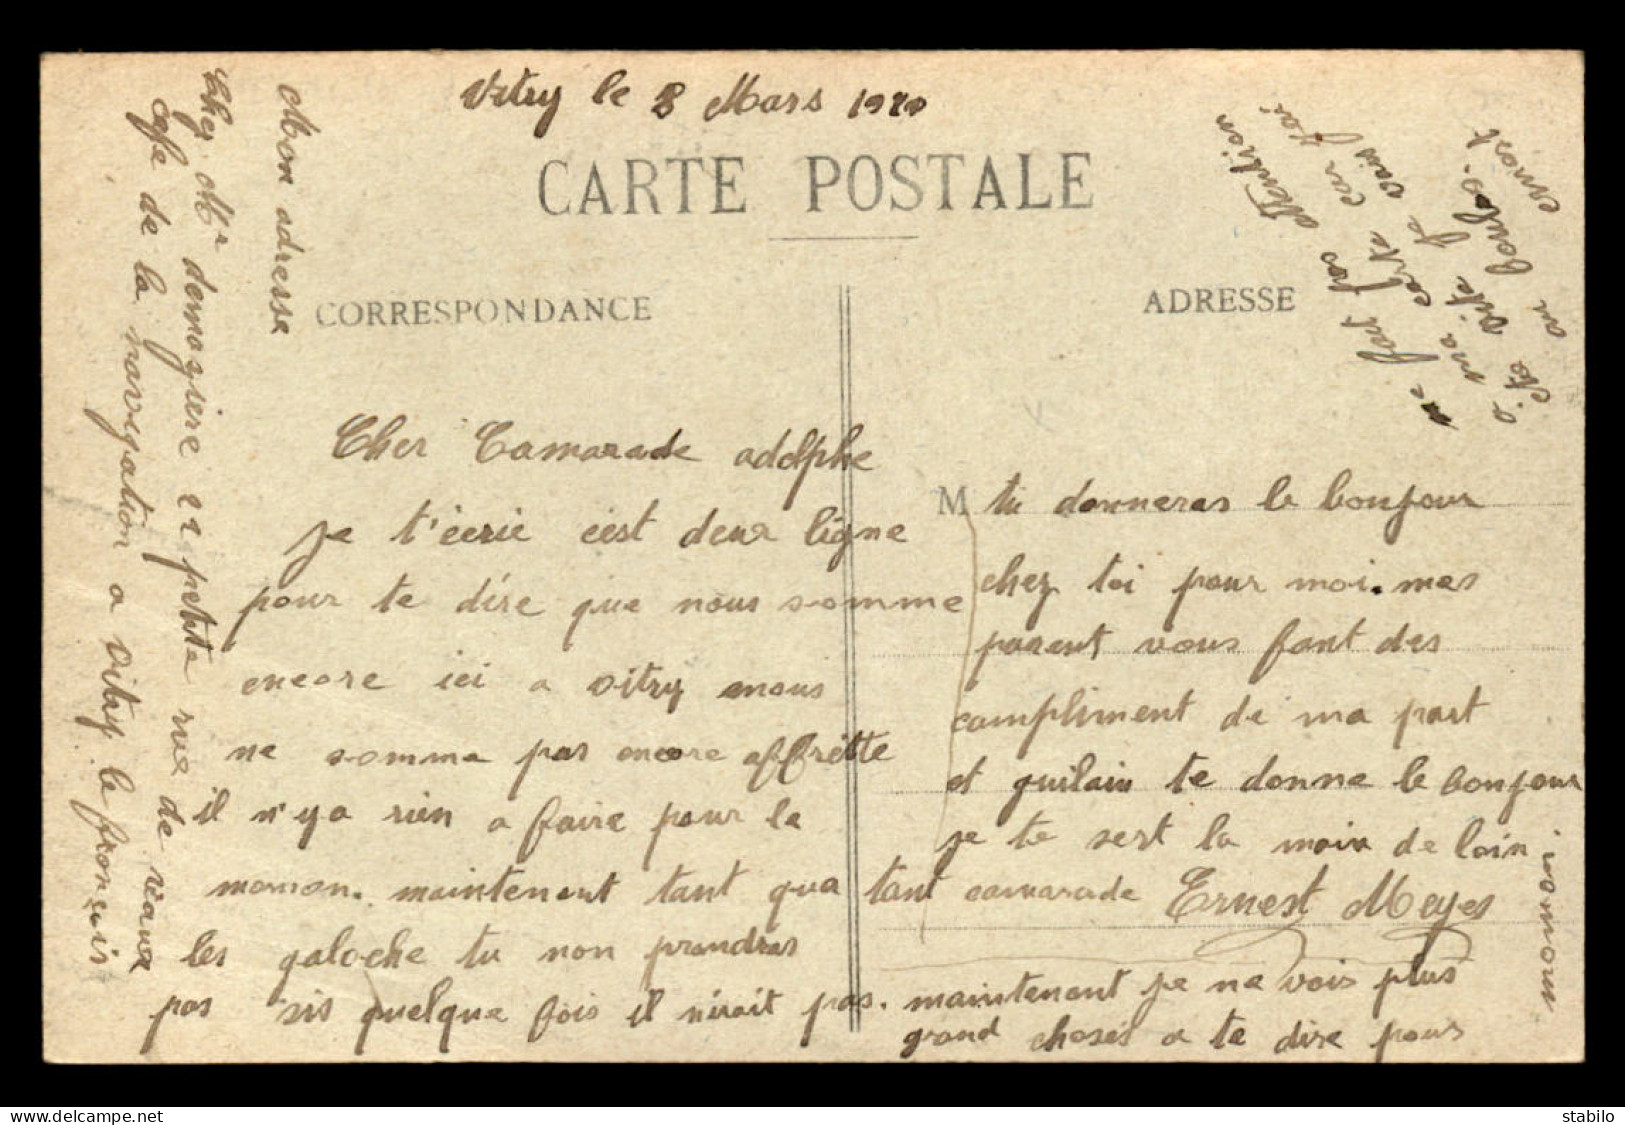 Vitry le 8 Mars 1920
CARTE POSTALE
CORRESPONDANCE
ADRESSE
Cher Camarade adolphe
je t'écrie c'est deux ligne
pour te dire que nous somme
encore ici a vitry nous
ne somme pas encore affrette
il n'y a rien a faire pour le
moment. maintenent tant qua tant
les galoche tu non prendras
pas sis quelque fois il n'irait pas.
M tu donneras le bonjour
chez toi pour moi. mes
parent vous font des
compliment de ma part
et guilain te donne le bonjour
je te sert la main de loin
camarade Ernest Meyes
maintenent je ne vois plus
grand choses a te dire pour
Mon adresse
Cher Mr demaziere et petite rue de
cafe de la navigation a vitry le françois
me faut pas attention
a ma carte car j'ai
vite je vais
au